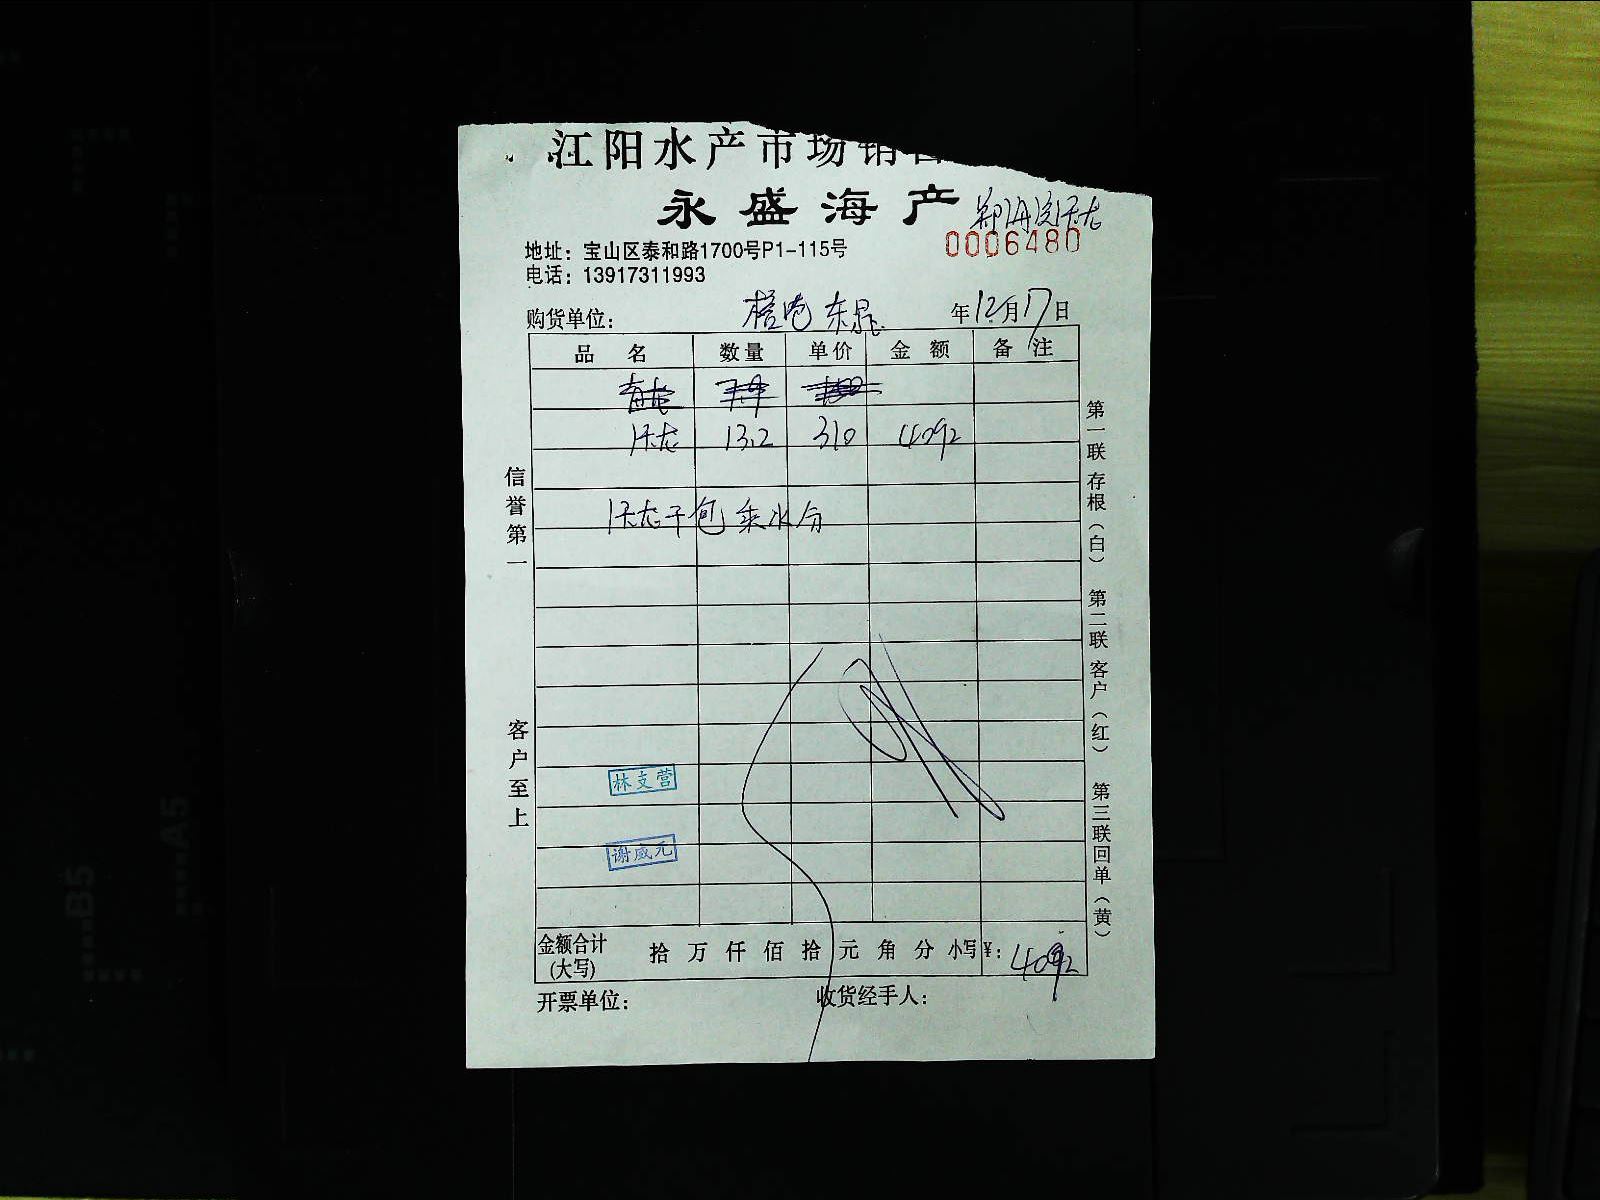 江阳水产市场销售
永盛海产
0006480
地址：宝山区泰和路1700号P1-115号
电话：13917311993
购货单位：
年12月17日
品 名 数量 单价 金 额 备 注
13.2 310 4092
信誉第一
客户至上
第一联存根（白） 第二联客户（红） 第三联回单（黄）
林支营
谢咸元
金额合计（大写） 拾 万 仟 佰 拾 元 角 分 小写¥：4092
开票单位： 收货经手人：
A5
B5